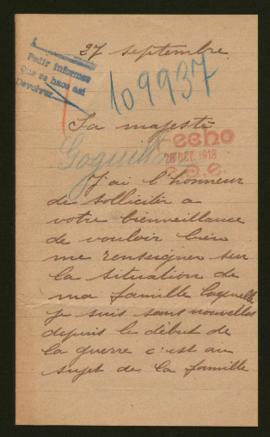 27 septembre
Pedir informes
Que se hace así
Devolver
109937
Sa majesté
echo
1918
J'ai l'honneur
de solliciter a
votre bienveillance
de vouloir bien
me renseigner sur
la situation de
ma famille
je suis sans nouvelles
depuis le début de
la guerre c'est au
sujet de la famille